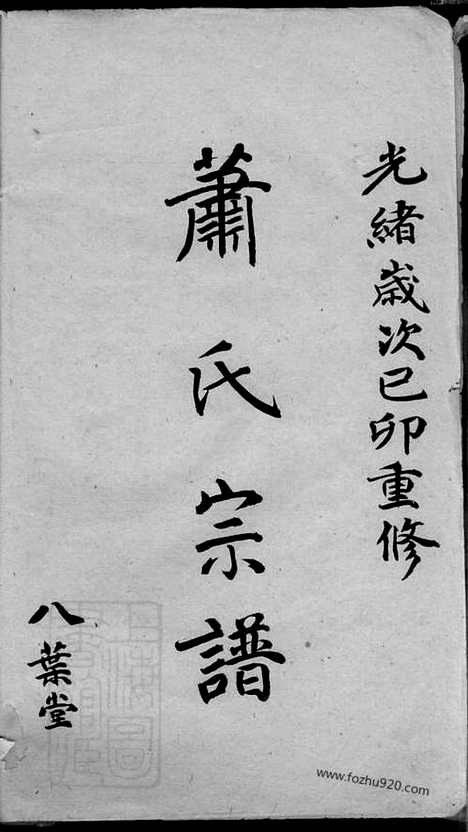 光緒歲次己卯重修
蕭氏宗譜
八葉堂
www.fozhu920.com